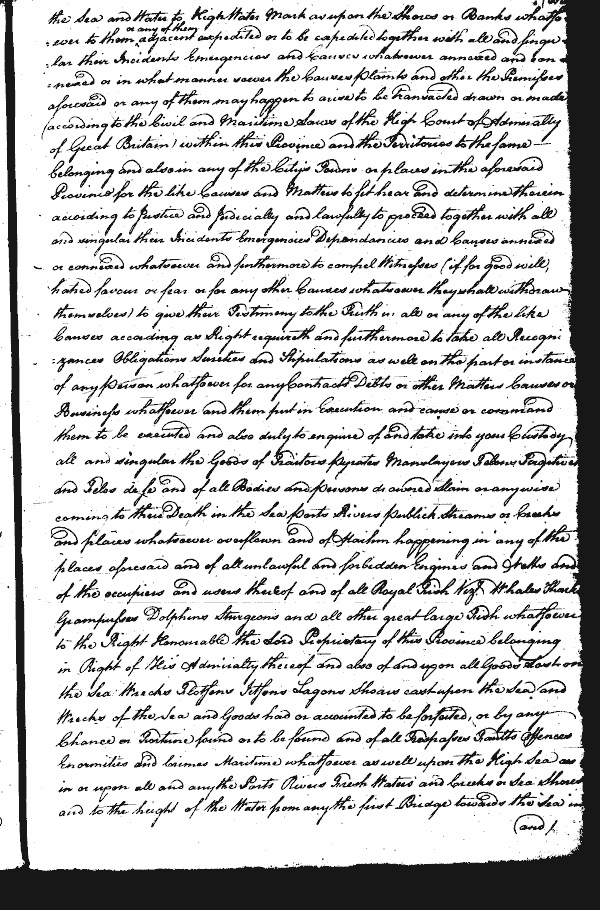 the Sea and Water to High Water Mark as upon the Shores or Banks whatso
or any of them
-ever to them adjacent expedited or to be expedited together with all and singu
lar their Incidents Emergencies and Causes whatsoever annexed and con
:nexed or in what manner soever the Causes Plaints and other the Premisses
aforesaid or any of them may happen to arise to be Transacted drawn or made
(according to the Civil and Maritime Laws of the High Court of Admiralty
of Great Britain) within this Province and the Territories to the same
belonging and also in any of the Citys Towns or places in the aforesaid
Province for the like Causes and Matters to fit hear and determine therein
according to Justice and Judicially and lawfully to proceed together with all
and singular their Incidents Emergencies Dependancies and Causes annexed
or connexed whatsoever and furthermore to compel Witnesses (if for good will,
hatred favour or fear or for any other Causes whatsoever they shall withdraw
themselves) to give their Testimony to the Truth in all or any of the like
Causes according as Right requireth and furthermore to take all Recogni
:zances Obligations Sureties and Stipulations as well on the part or instance
of any person whatsoever for any Contracts Debts or other Matters Causes or
Business whatsoever and them put in Execution and cause or command
them to be executed and also duly to enquire of and take into your Custody
all and singular the Goods of Traitors Pyrates Manslayers Felons Fugitives
and Felos de se and of all Bodies and persons drowned Slain or any wise
coming to their Death in the Sea Ports Rivers publick Streams or Creeks
and places whatsoever overflown and of Maihm happening in any of the
places aforesaid and of all unlawful and forbidden Engines and Netts and
of the occupiers and users thereof and of all Royal Fish Vizt. Whales
Grampusses Dolphins Sturgeons and all other great large Fish whatsoever
to the Right Honourable the Lord Proprietary of this Province belonging
in Right of His Admiralty thereof and also of and upon all Goods Lost on
the Sea Wrecks Flotsons Jetsons Lagons Shoars cast upon the Sea and
Wrecks of the Sea and Goods had or accounted to be forfeited, or by any
Chance or Fortune found or to be found and of all Trespasses Faults Offences
Enormities and Crimes Maritime whatsoever as well upon the High Sea as
in or upon all and any the Ports Rivers Fresh Waters and Creeks or Sea Shores
and to the height of the Water from any the first Bridge towards the Sea in
(and).